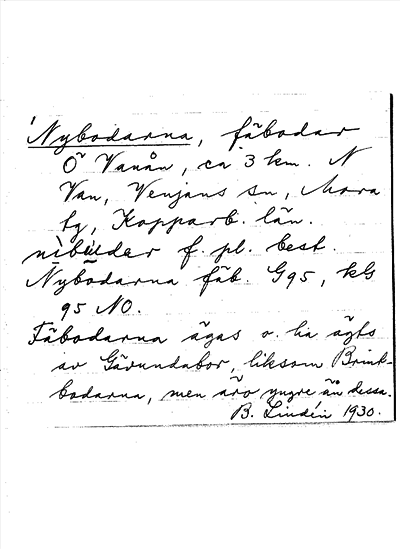 'Nybodarna, fäbodar
Ö Vanån, ca 3 km. N
Van, Venjans sn, Mora
tg, Kopparb. län.
nìbùder f. pl. best.
Nybodarna fäb. G95, kG
95 NO.
Fäbodarna ägas o. ha ägts
av Gävundabor, liksom Brink-
bodarna, men äro yngre än dessa.
B. Lindén 1930.